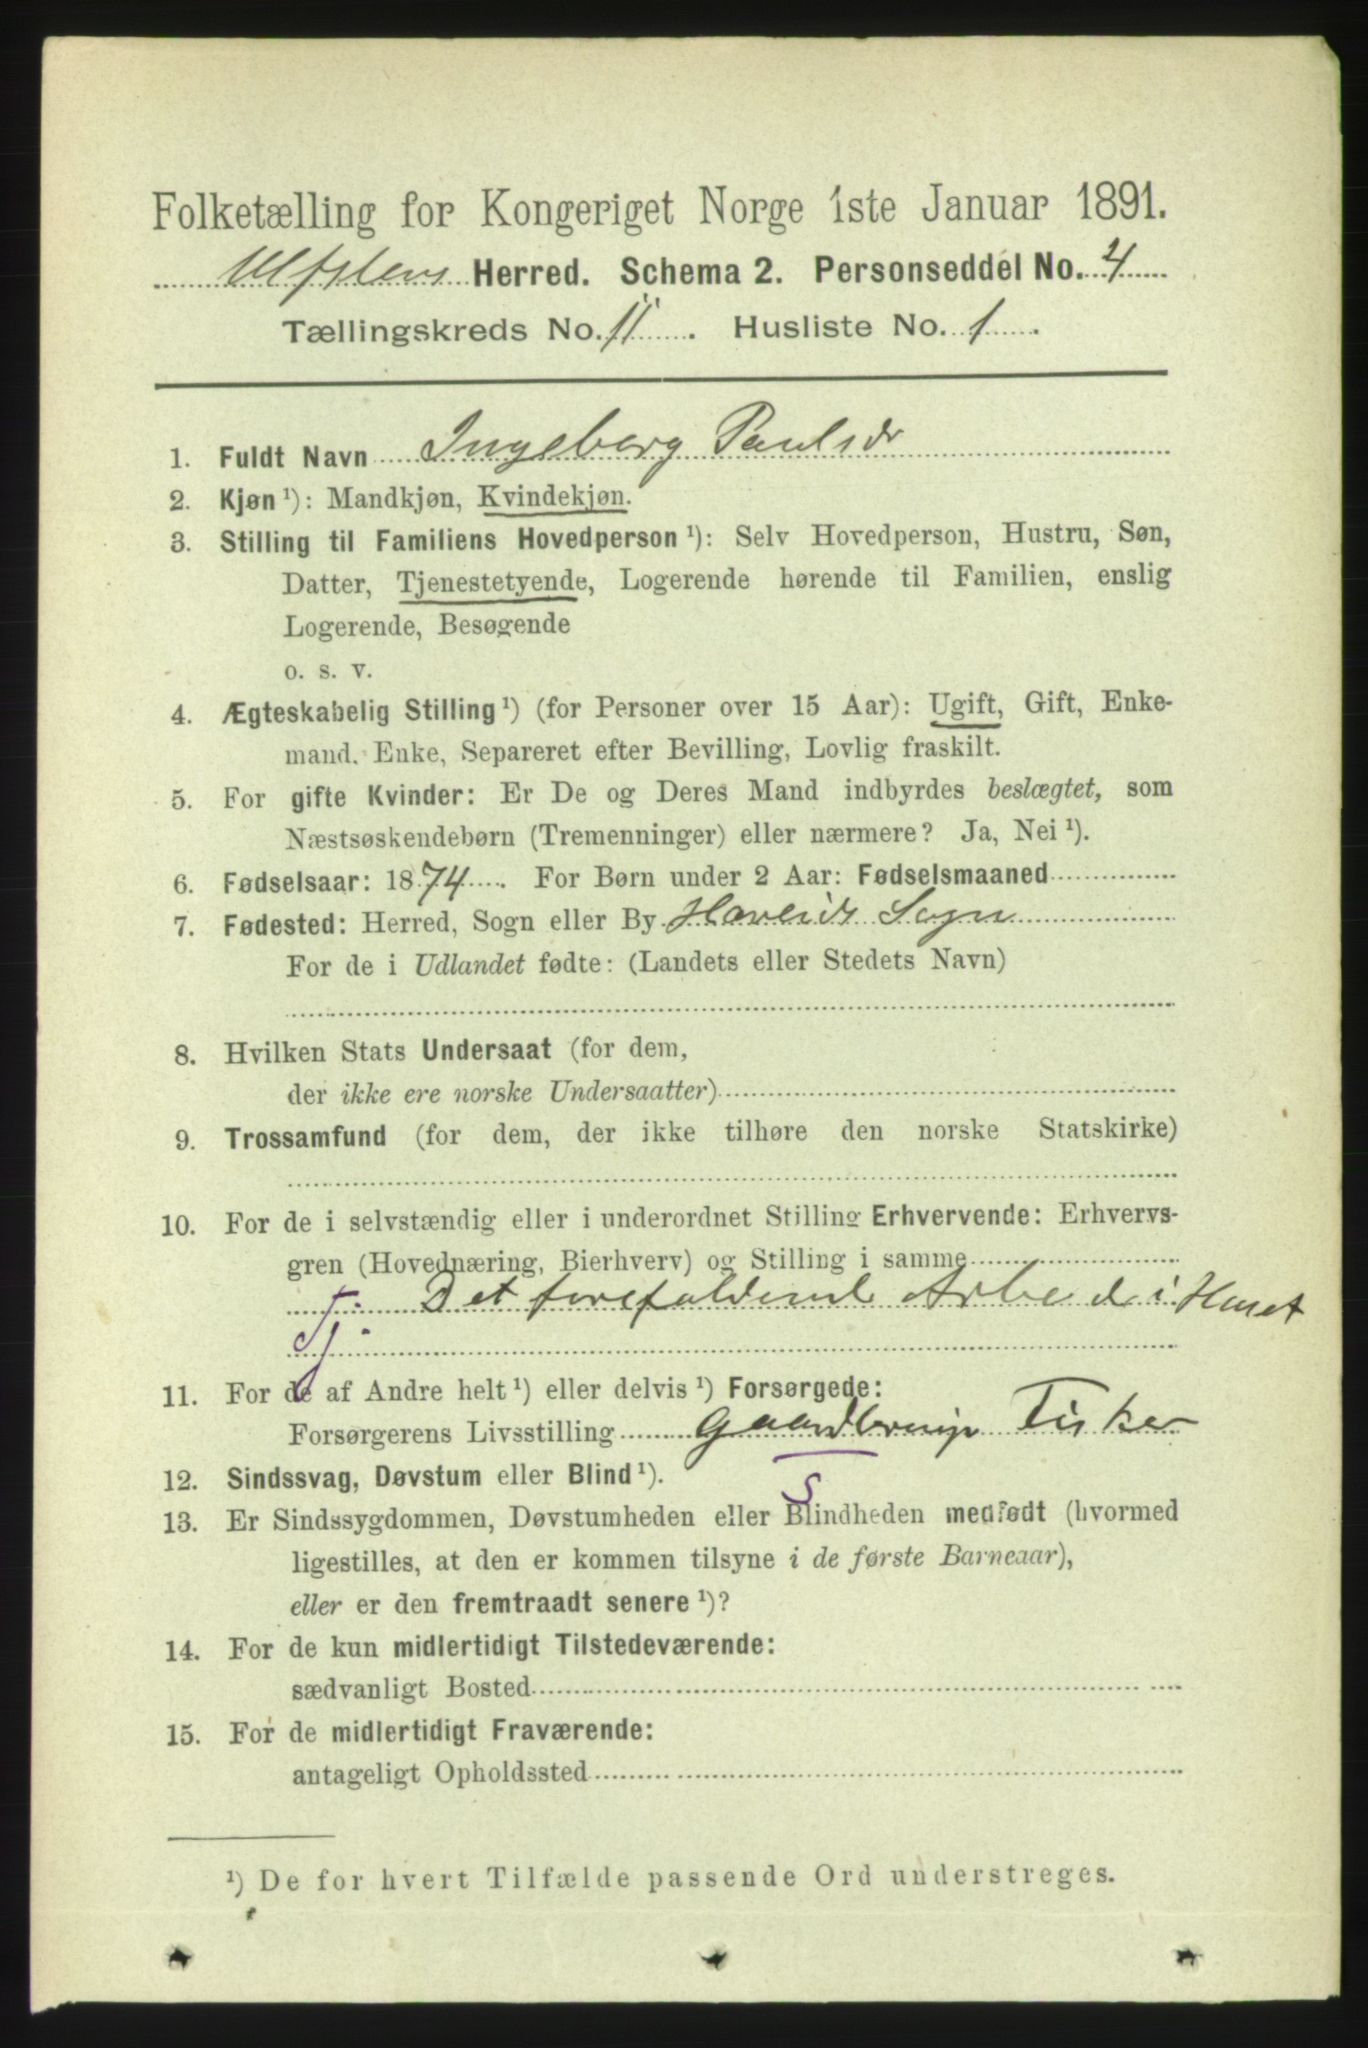 Folketælling for Kongeriget Norge 1ste Januar 1891.
Ulfstens Herred. Schema 2. Personseddel No. 4
Tællingskreds No. 11. Husliste No. 1.
1. Fuldt Navn Ingeborg Paulsdr
2. Kjøn ¹): Mandkjøn, Kvindekjøn.
3. Stilling til Familiens Hovedperson ¹): Selv Hovedperson, Hustru, Søn,
Datter, Tjenestetyende, Logerende hørende til Familien, enslig
Logerende, Besøgende
o. s. v.
4. Ægteskabelig Stilling ¹) (for Personer over 15 Aar): Ugift, Gift, Enke-
mand, Enke, Separeret efter Bevilling, Lovlig fraskilt.
5. For gifte Kvinder: Er De og Deres Mand indbyrdes beslægtet, som
Næstsøskendebørn (Tremenninger) eller nærmere? Ja, Nei ¹).
6. Fødselsaar: 1874. For Børn under 2 Aar: Fødselsmaaned
7. Fødested: Herred, Sogn eller By Hareids Sogn
For de i Udlandet fødte: (Landets eller Stedets Navn)
8. Hvilken Stats Undersaat (for dem,
der ikke ere norske Undersaatter)
9. Trossamfund (for dem, der ikke tilhøre den norske Statskirke)
10. For de i selvstændig eller i underordnet Stilling Erhvervende: Erhvervs-
gren (Hovednæring, Bierhverv) og Stilling i samme
Tj. Det forefaldende Arbeide i Huset
11. For de af Andre helt ¹) eller delvis ¹) Forsørgede:
Forsørgerens Livsstilling Gaardbruger Fisker
S
12. Sindssvag, Døvstum eller Blind ¹).
13. Er Sindssygdommen, Døvstumheden eller Blindheden medfødt (hvormed
ligestilles, at den er kommen tilsyne i de første Barneaar),
eller er den fremtraadt senere ¹)?
14. For de kun midlertidigt Tilstedeværende:
sædvanligt Bosted
15. For de midlertidigt Fraværende:
antageligt Opholdssted
¹) De for hvert Tilfælde passende Ord understreges.